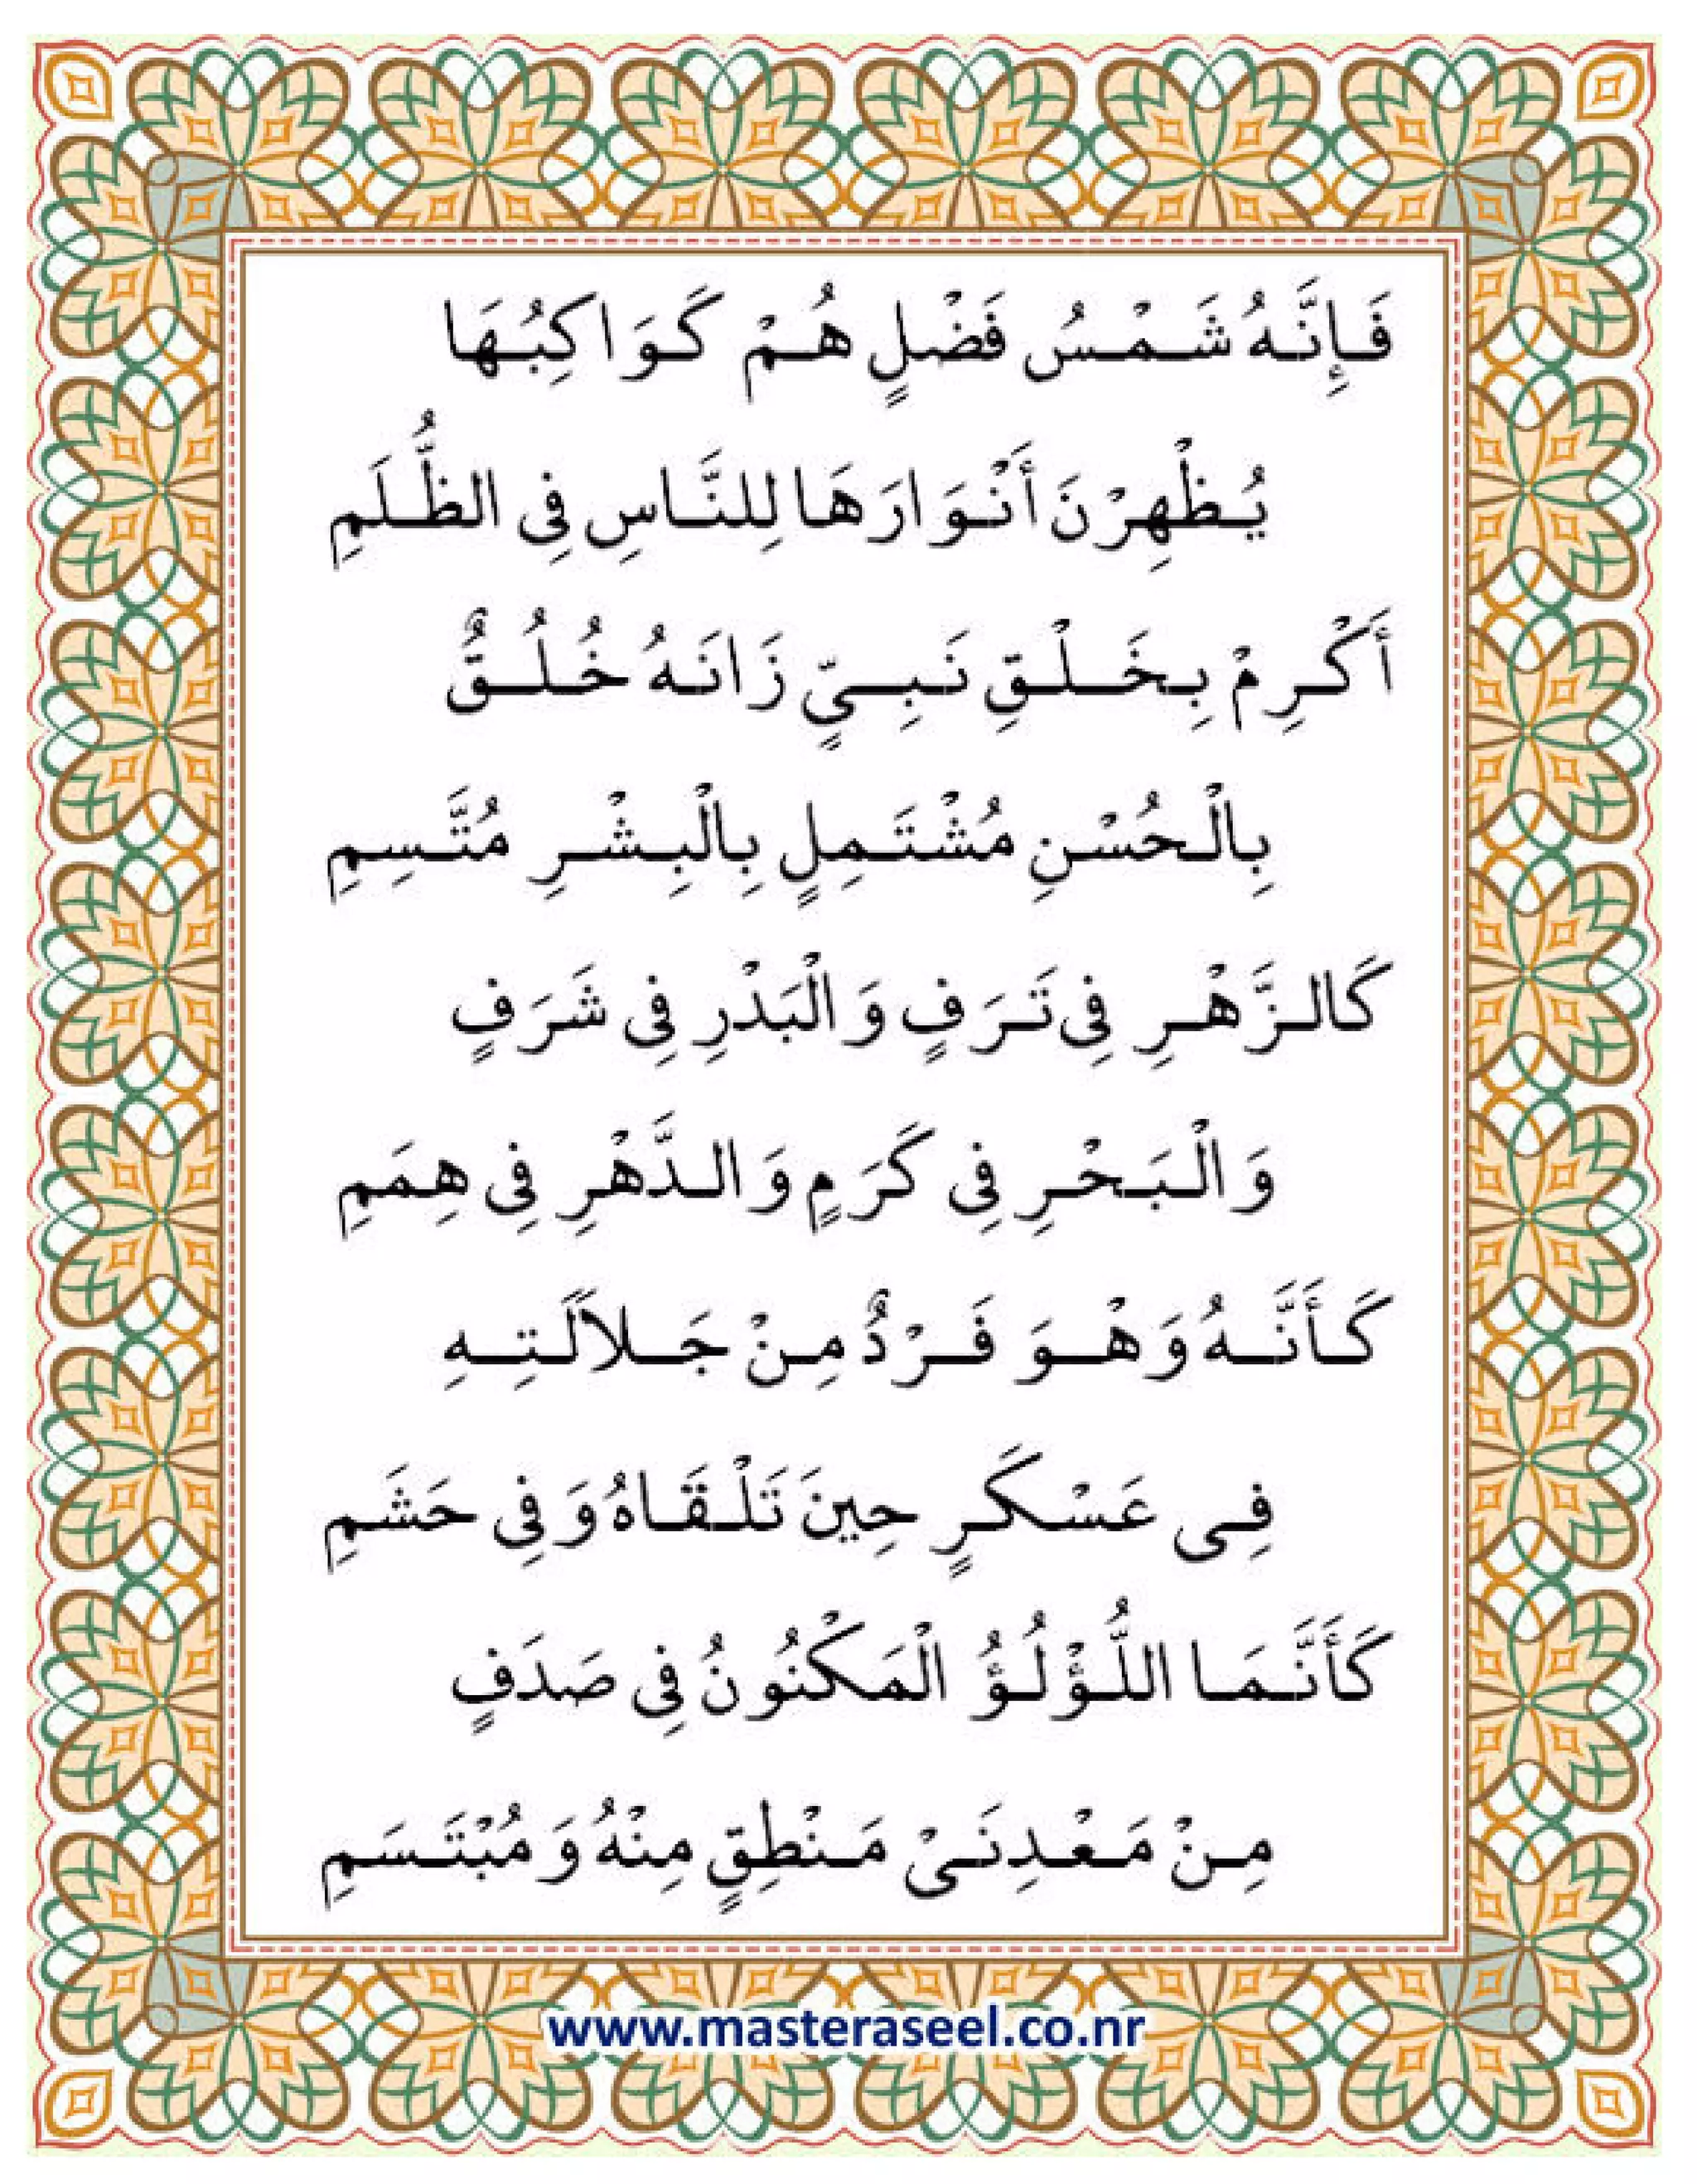 فَإِنَّهُ شَمْسُ فَضْلٍ هُمْ كَوَاكِبُهَا
يُظْهِرْنَ أَنْوَارَهَا لِلنَّاسِ فِى الظُّلَمِ
أَكْرِمْ بِخَلْقِ نَبِيٍّ زَانَهُ خُلُقٌ
بِالْحُسْنِ مُشْتَمِلٍ بِالْبِشْرِ مُتَّسِمِ
كَالزَّهْرِ فِى تَرَفٍ وَالْبَدْرِ فِى شَرَفٍ
وَالْبَحْرِ فِى كَرَمٍ وَالدَّهْرِ فِى هِمَمِ
كَأَنَّهُ وَهْوَ فَرْدٌ مِنْ جَلاَلَتِهِ
فِى عَسْكَرٍ حِينَ تَلْقَاهُ وَفِى حَشَمِ
كَأَنَّمَا اللُّؤْلُؤُ الْمَكْنُونُ فِى صَدَفٍ
مِنْ مَعْدِنَىْ مَنْطِقٍ مِنْهُ وَمُبْتَسَمِ
www.masteraseel.co.nr